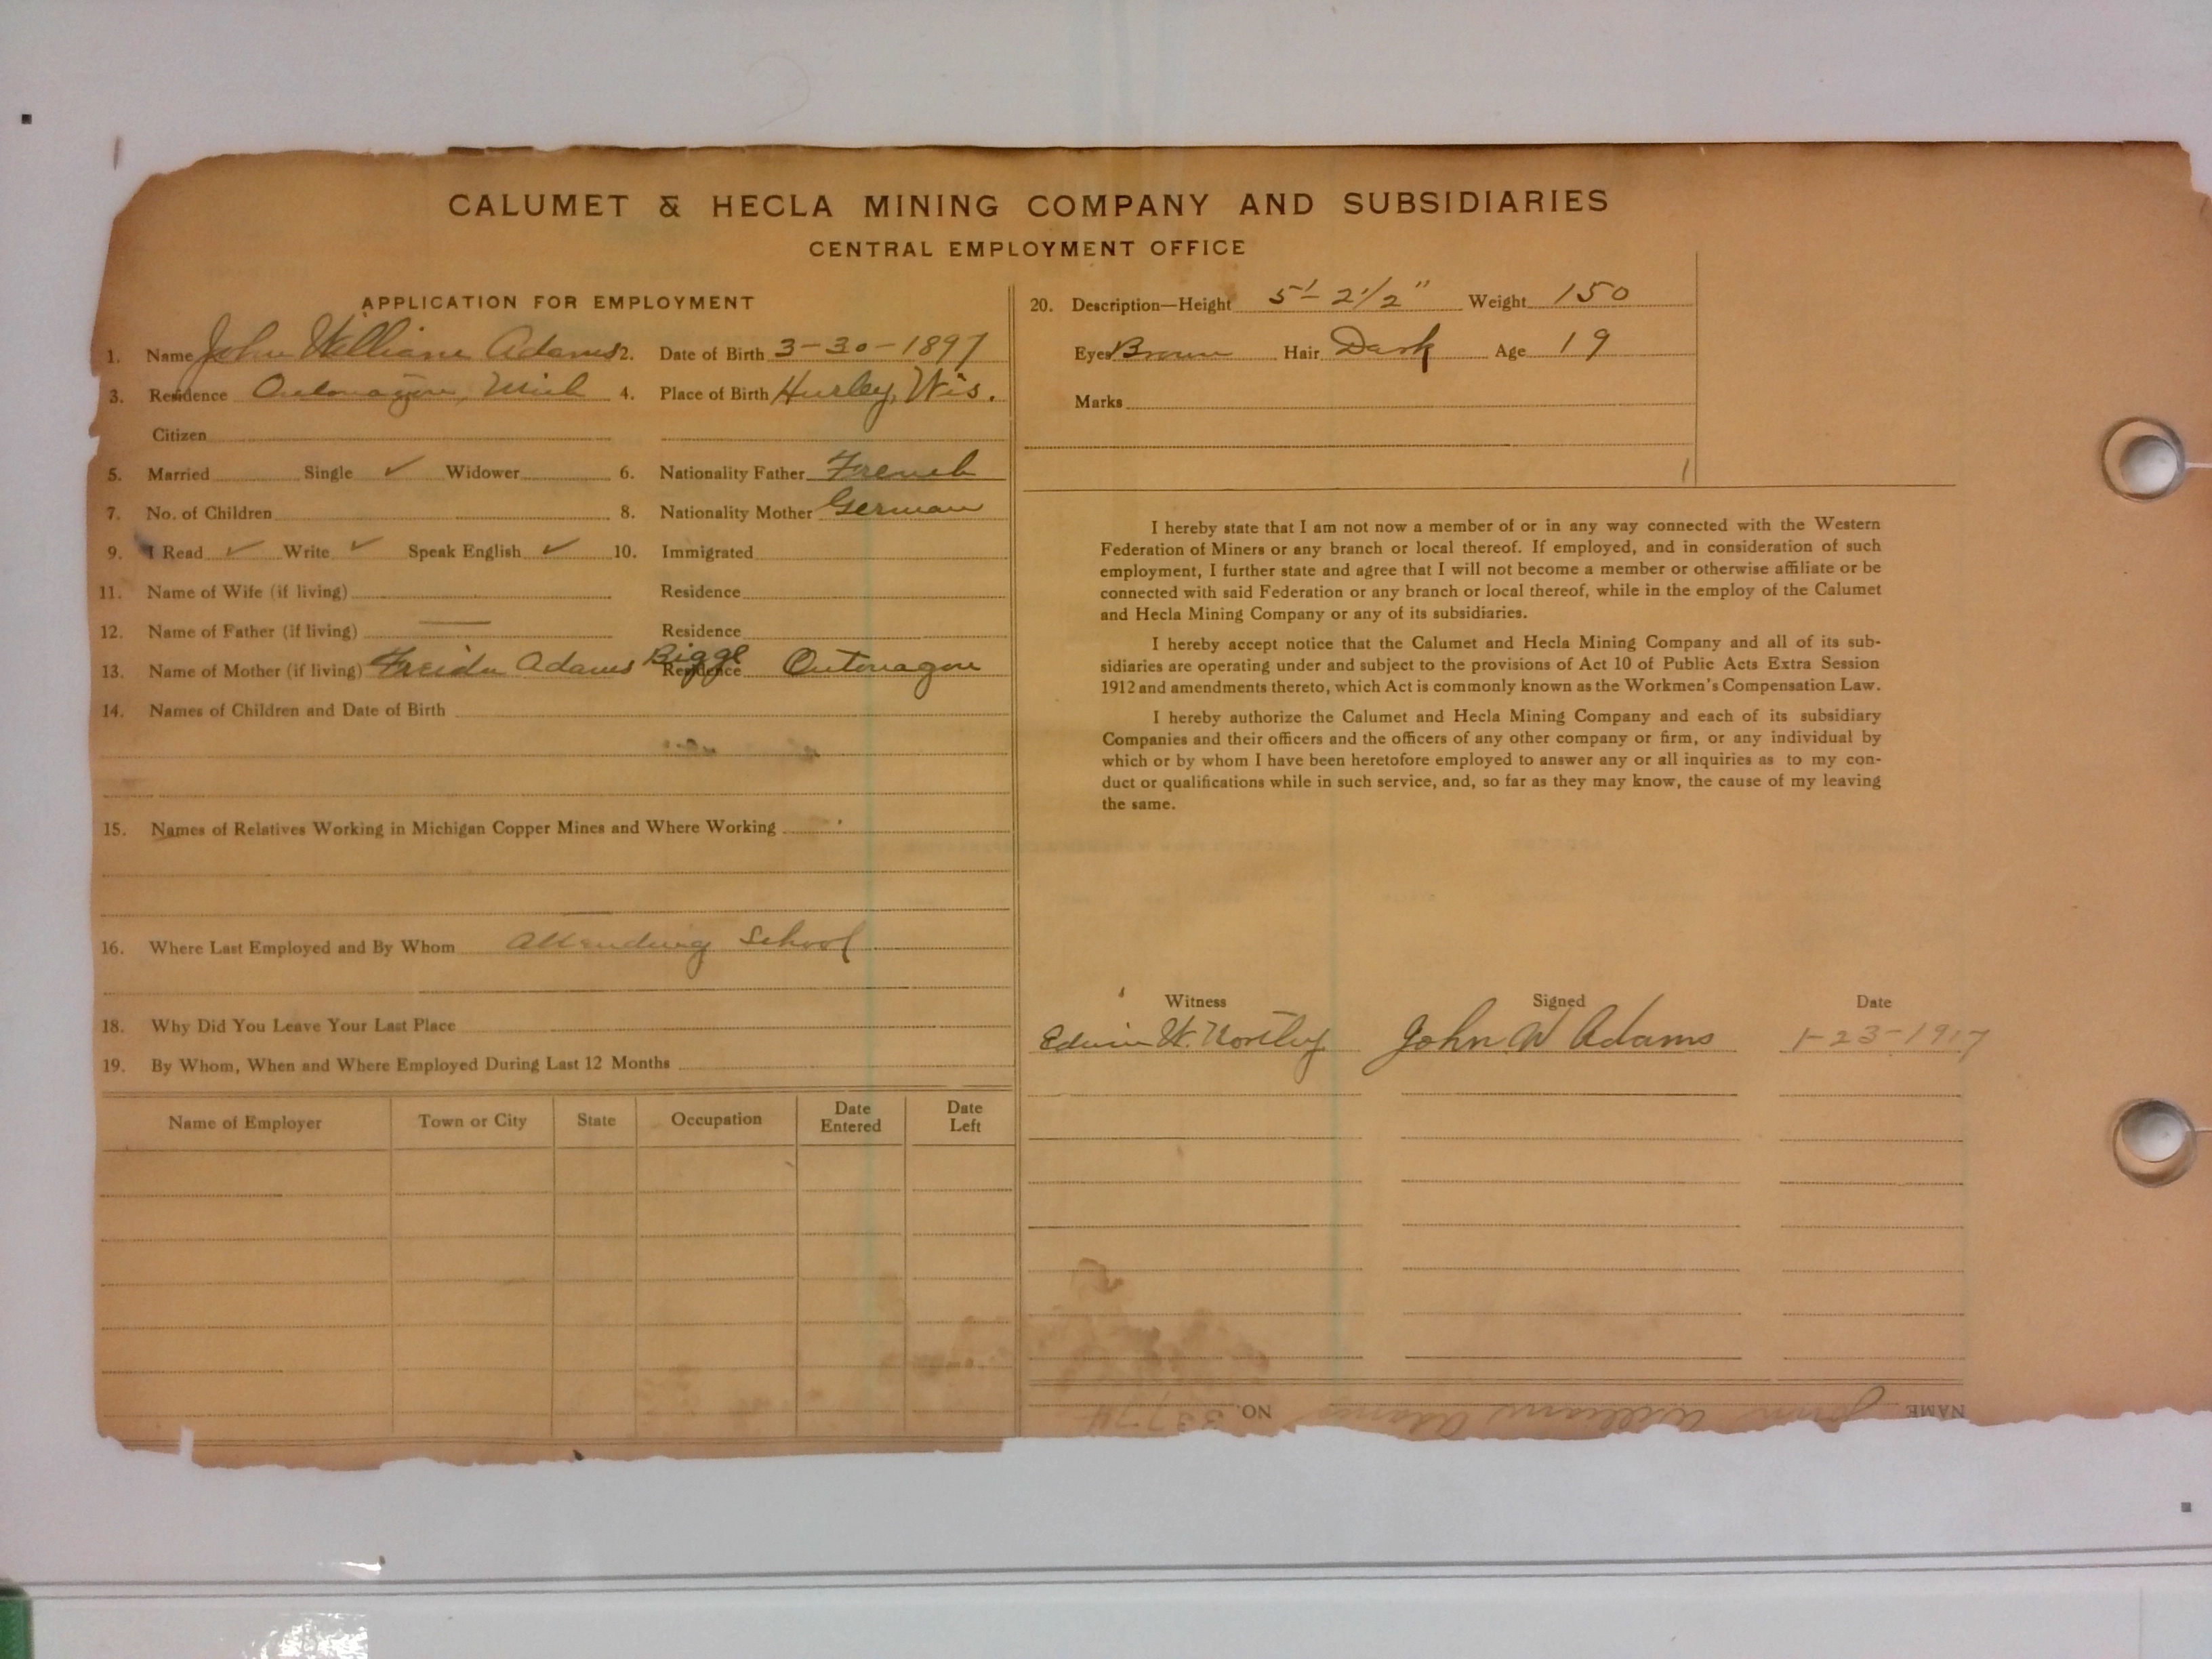 CALUMET & HECLA MINING COMPANY AND SUBSIDIARIES
CENTRAL EMPLOYMENT OFFICE
APPLICATION FOR EMPLOYMENT
1. Name John William Adams 2. Date of Birth 3-30-1897
3. Residence Ontonagon, Mich 4. Place of Birth Hurley, Wis.
Citizen
5. Married Single ✓ Widower 6. Nationality Father French
7. No. of Children 8. Nationality Mother German
9. I Read ✓ Write ✓ Speak English ✓ 10. Immigrated
11. Name of Wife (if living) Residence
12. Name of Father (if living) — Residence
13. Name of Mother (if living) Freida Adams Bigge Residence Ontonagon
14. Names of Children and Date of Birth
15. Names of Relatives Working in Michigan Copper Mines and Where Working
16. Where Last Employed and By Whom Attending School
18. Why Did You Leave Your Last Place
19. By Whom, When and Where Employed During Last 12 Months
Name of Employer Town or City State Occupation Date Entered Date Left
20. Description—Height 5'-2 1/2" Weight 150
Eyes Brown Hair Dark Age 19
Marks
I hereby state that I am not now a member of or in any way connected with the Western
Federation of Miners or any branch or local thereof. If employed, and in consideration of such
employment, I further state and agree that I will not become a member or otherwise affiliate or be
connected with said Federation or any branch or local thereof, while in the employ of the Calumet
and Hecla Mining Company or any of its subsidiaries.
I hereby accept notice that the Calumet and Hecla Mining Company and all of its sub-
sidiaries are operating under and subject to the provisions of Act 10 of Public Acts Extra Session
1912 and amendments thereto, which Act is commonly known as the Workmen's Compensation Law.
I hereby authorize the Calumet and Hecla Mining Company and each of its subsidiary
Companies and their officers and the officers of any other company or firm, or any individual by
which or by whom I have been heretofore employed to answer any or all inquiries as to my con-
duct or qualifications while in such service, and, so far as they may know, the cause of my leaving
the same.
Witness Signed Date
Edwin W. John W Adams 1-23-1917
NAME John William Adams NO. 33774